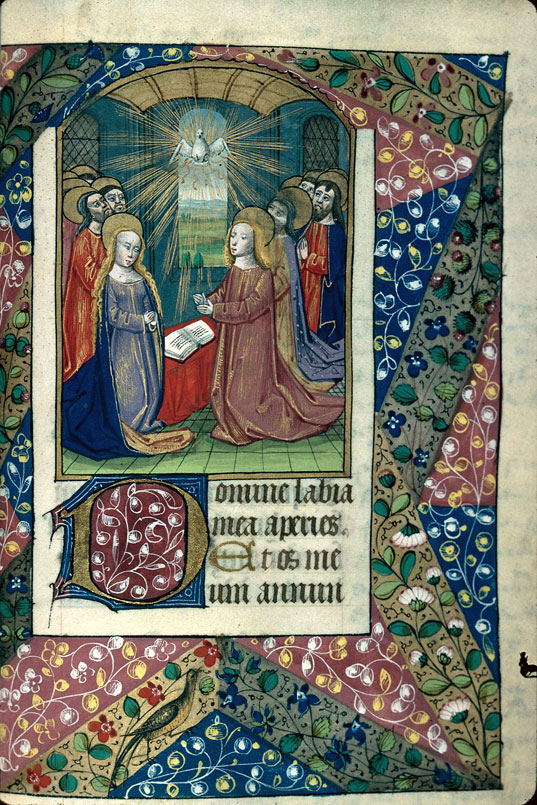 Domine labia
mea aperies.
Et os me
um annun